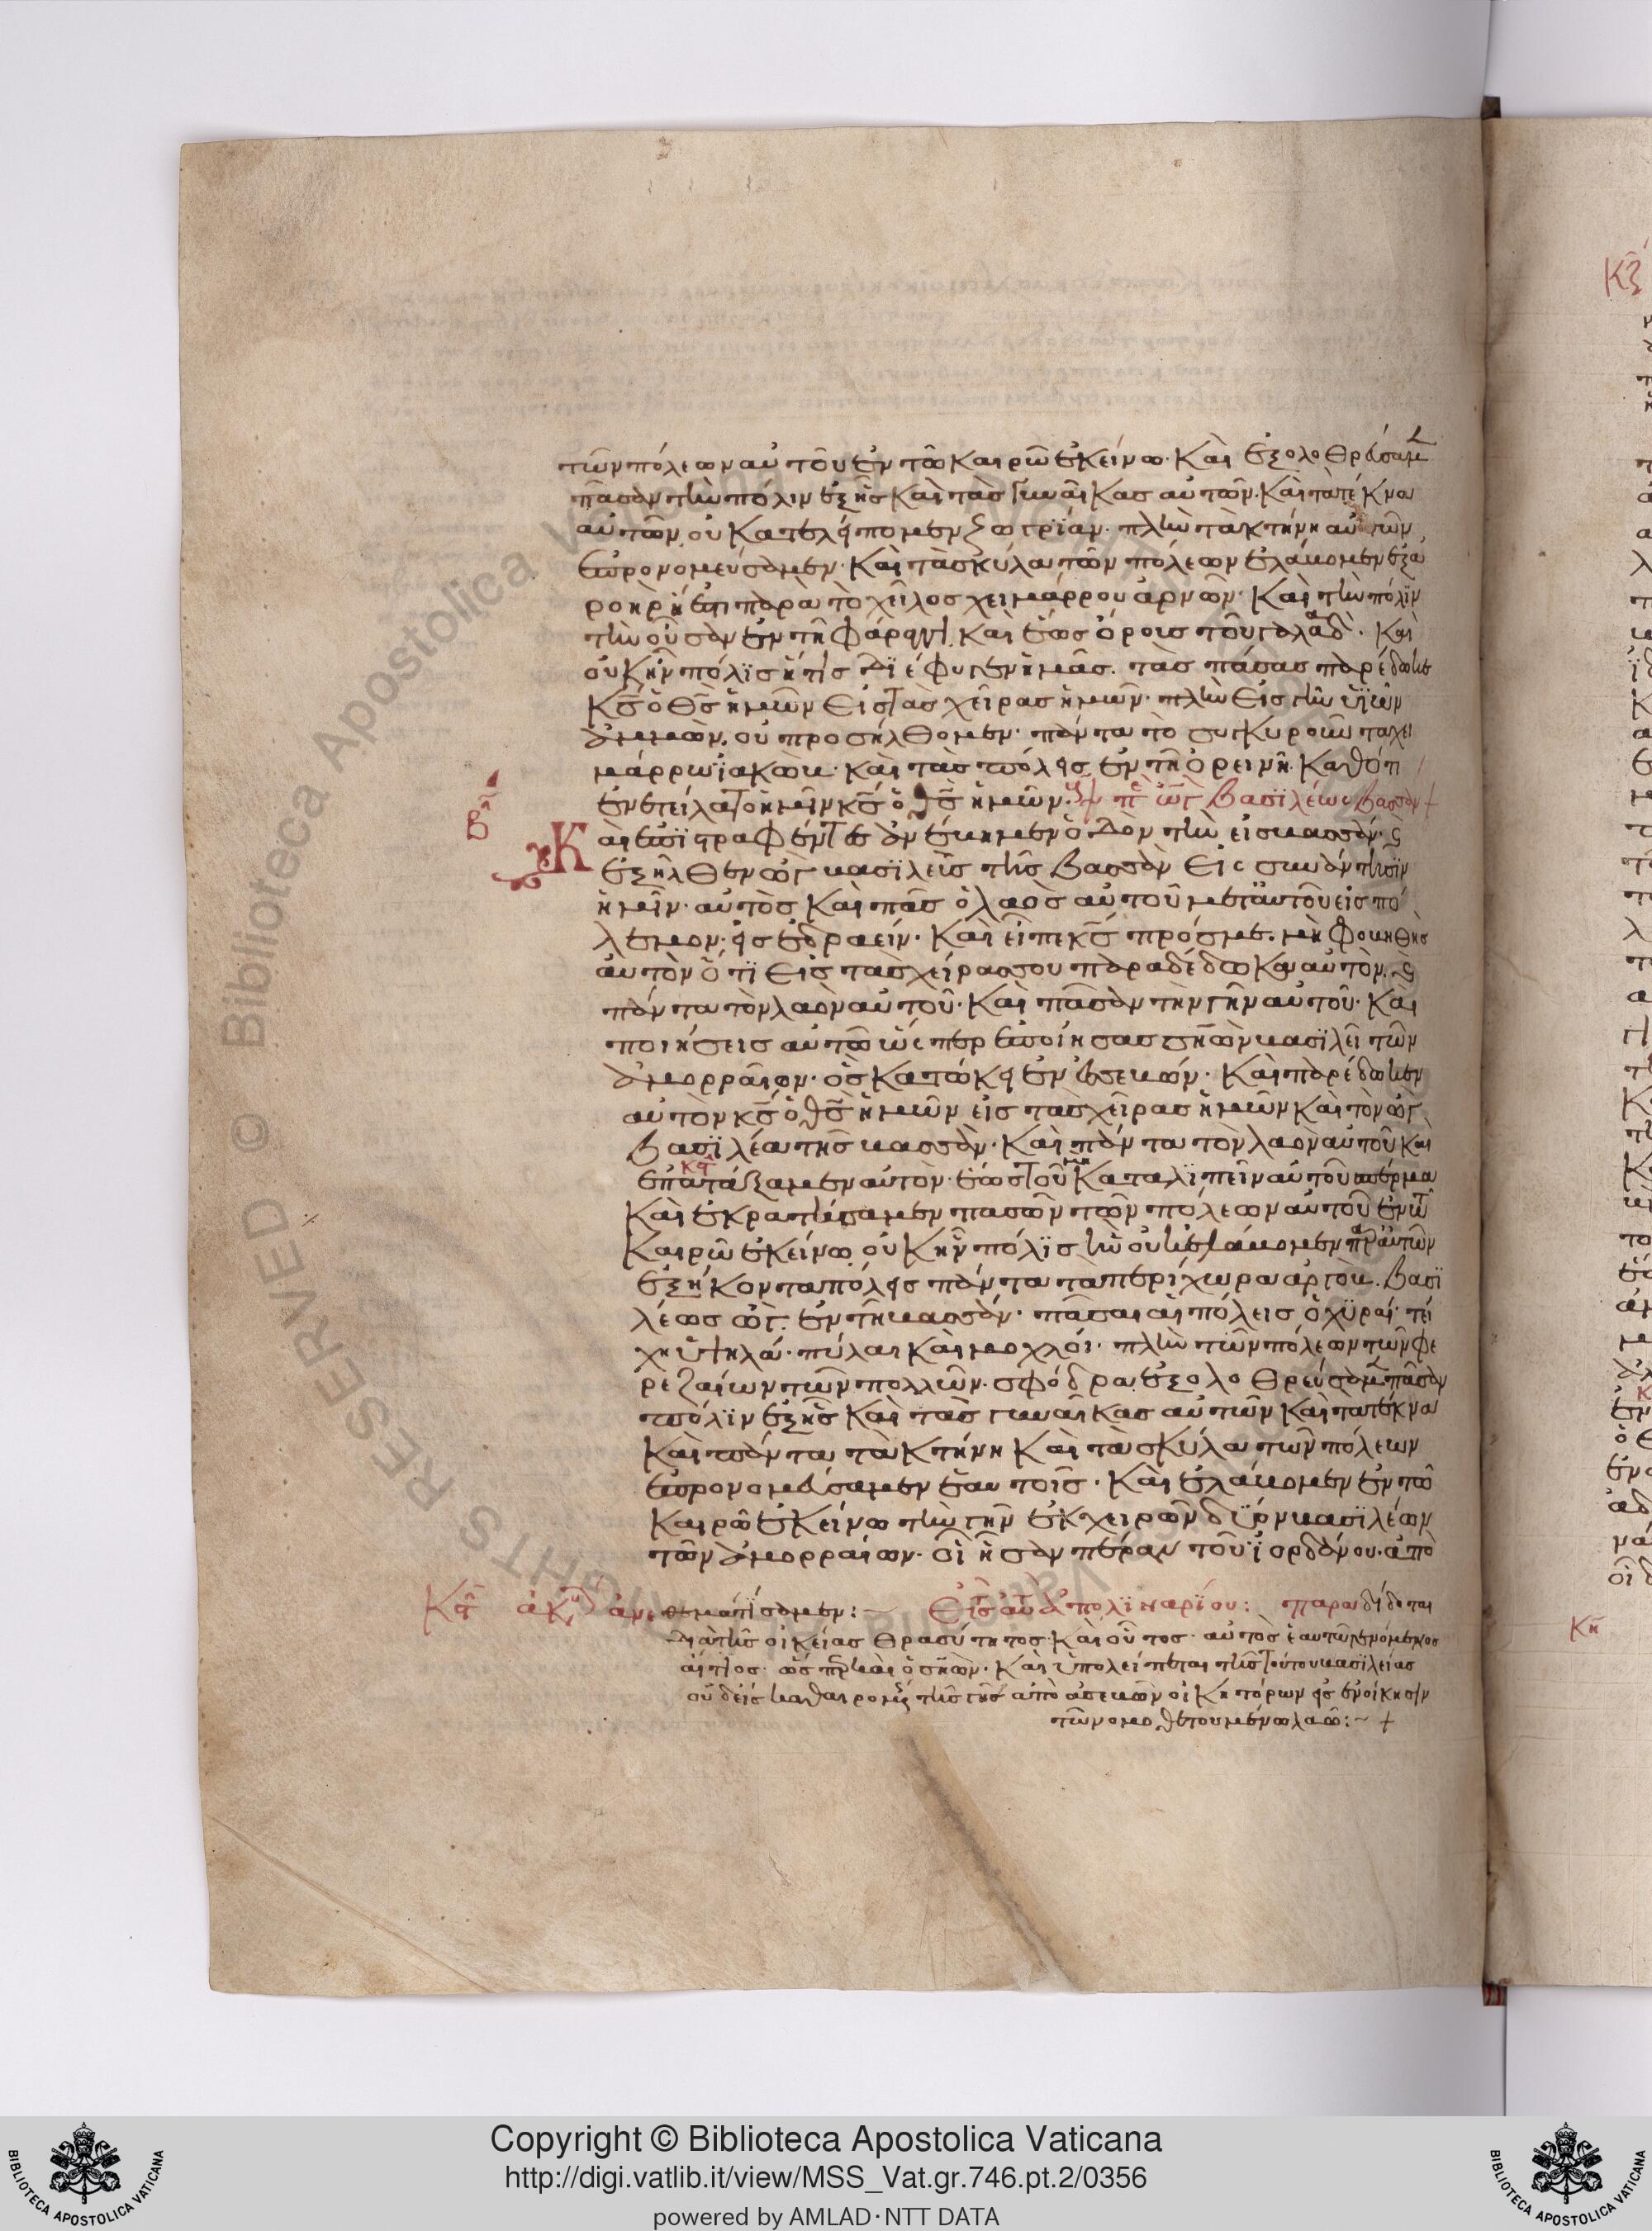 τῶν πόλεων αὐτοῦ ἐν τῶ καιρῶ ἐκείνω· καὶ ἐξολοθρεύσαμ
πᾶσαν τὴν πόλιν ἑξῆς καὶ τὰς γυναῖκας αὐτῶν· καὶ τὰ τέκνα
αὐτῶν, οὐ κατελείπομεν ζωγρίαν· πλὴν τὰ κτήνη αὐτῶν
ἐπρονομεύσαμεν· καὶ τὰ σκύλα τῶν πόλεων ἐλάβομεν ἐξ ἀ
ροηρ ἥ ἐστι παρὰ τὸ χεῖλος χειμάρρου ἀρνῶν· καὶ τὴν πόλϊν
τὴν οὖσαν ἐν τῆ φάραγγι καὶ ἕως ὄρους τοῦ γαλαάδ· καὶ
οὐκ ἦν πόλϊς ἥτις διέφυγεν ἡμᾶς. τὰς πάσας παρέδωκε
κς ὁ θς ἡμῶν εἰς τὰς χεῖρας ἡμῶν· πλὴν εἰς γῆν ϋἱῶν
ἀμμὼν, οὐ προσήλθομεν· πάντα τὰ συγκυροῦντα χει
μάρρω ϊακὼβ· καὶ τὰς πόλεις ἐν τῆ ὀρεινῆ. καθότι
ἐνετείλατο ἡμῖν κς ὁ θς ἡμῶν· ὢγ βασϊλέως βασσὰν
β
Καὶ ἐπϊστραφέντες ἀνέβημεν ὁδὸν τὴν εἰς βασσάν·
ἐξῆλθεν ὢγ βασϊλεὺς τῆς βασσὰν εἰς συνάντησϊν
ἡμῖν· αὐτὸς καὶ πᾶς ὁ λαὸς αὐτοῦ μετ αὐτοῦ εἰς πό
λεμον· εἰς ἐδραείν· καὶ εἶπε κς πρός με. μὴ φοβηθῆς
αὐτὸν ὅτϊ εἰς τὰς χεῖρας σου παραδέδωκα αὐτὸν,
πάντα τὸν λαὸν αὐτοῦ· καὶ πᾶσαν τὴν γῆν αὐτοῦ· καὶ
ποιήσεις αὐτῶ ὥσπερ ἐποίησας σηὼν βασϊλεῖ τῶν
ἀμορραίων· ὃς κατώκει ἐν ἐσεβών· καὶ παρέδωκεν
αὐτὸν κς ὁ θς ἡμῶν εἰς τὰς χεῖρας ἡμῶν καὶ τὸν ὢγ
βασϊλέα τῆς βασσάν· καὶ πάντα τὸν λαὸν αὐτοῦ καὶ
ἐπατάξαμεν αὐτὸν· ἕως τοῦ μὴ καταλϊπεῖν αὐτοῦ σπέρμα
καὶ ἐκρατήσαμεν πασῶν τῶν πόλεων αὐτοῦ ἐν τῶ
καιρῶ ἐκείνω· οὐκ ἦν πόλϊς ἣν οὐκ ἐλάβομεν παρ αὐτῶν
ἑξήκοντα πόλεις πάντα τὰ περίχωρα ἀργὸβ. βασϊ
λέως ὢγ ἐν τῆ βασσάν· πᾶσαι αἱ πόλεις ὀχϋραί· τεί
χη ὑψηλά· πύλαι καὶ μοχλοί· πλὴν τῶν πόλεων τῶν φε
ρεζαίων τῶν πολλῶν· σφόδρα ἐξολοθρεύσαμ πᾶσαν
πόλϊν ἑξῆς καὶ τὰς γυναῖκας αὐτῶν καὶ τὰ τέκνα
καὶ πάντα τὰ κτήνη καὶ τὰ σκύλα τῶν πόλεων
ἐπρονομεύσαμεν ἑαυτοῖς· καὶ ἐλάβομεν ἐν τῶ
καιρῶ ἐκείνω τὴν γῆν ἐκ χειρῶν δύο βασϊλέων
τῶν ἀμορραίων· οἳ ἦσαν πέραν τοῦ ϊορδάνου· ἀπὸ
ἀνεθεματίσαμεν: ἀπολϊναρΐου: παραδίδοται
διὰ τῆς οἰκείας θρασύτητος· καὶ οὗτος αὐτὸς ἑαυτῶ γενόμενος
αἴτιος· ὡς καὶ ὁ σηὼν· καὶ ὑπολείπεται τῆς τούτου βασϊλείας
οὐδεὶς καθαιρομένης τῆς γῆς ἀπὸ ἀσεβῶν οἰκητόρων εἰς ἐνοίκησιν
τῶ νομοθετουμένω λαῶ: